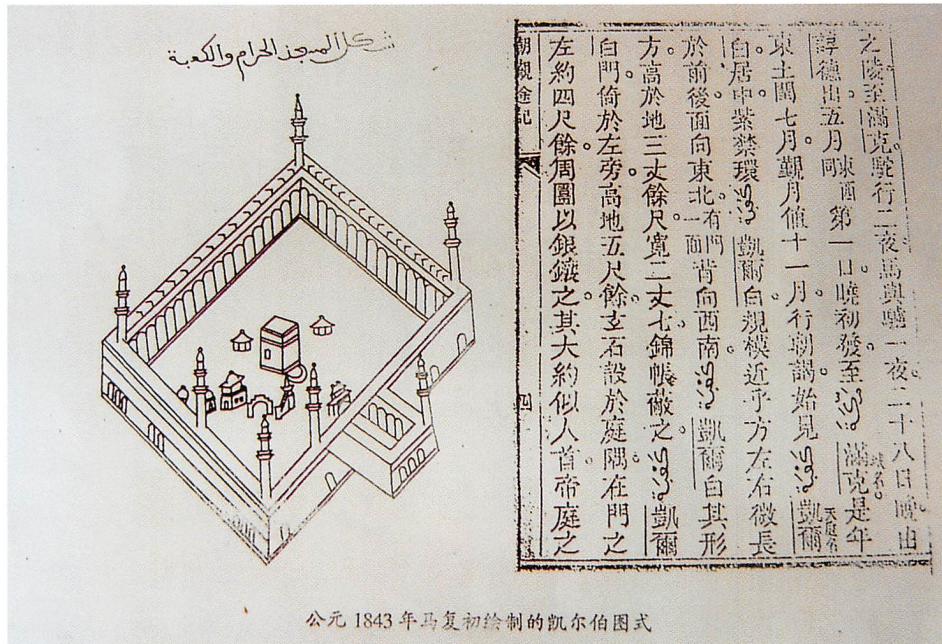 شكل المسجد الحرام والكعبة
之陵至滿克駝行二夜馬與驢一夜二十八日曉由
諄德出五月東西同第一日曉初發至مكة滿克城名是年
東土閏七月覲月値十一月行朝謁始見كعبة凱爾天庭名
白居中紫禁環كعبة凱爾白規模近乎方左右微長
於前後面向東北有門一面背向西南كعبة凱爾白其形
方高於地三丈餘尺寬二丈七錦帳蔽之كعبة凱爾
白門倚於左旁高地五尺餘玄石設於庭隅在門之
左約四尺餘周圍以銀鑲之其大約似人首帝庭之
朝覲途記
四
公元 1843 年马复初绘制的凯尔伯图式